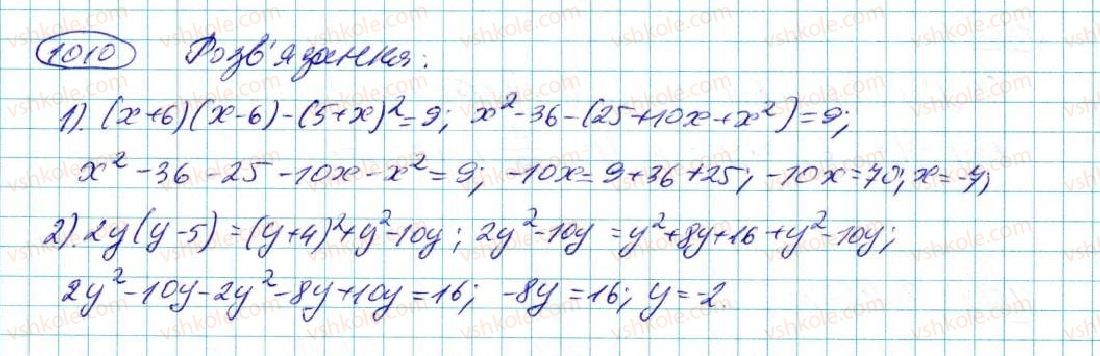 1010 Розв'язання:
1). (x+6)(x-6)-(5+x)²=9; x²-36-(25+10x+x²)=9;
x²-36-25-10x-x²=9; -10x=9+36+25; -10x=70; x=-7;
2). 2y(y-5)=(y+4)²+y²-10y; 2y²-10y=y²+8y+16+y²-10y;
2y²-10y-2y²-8y+10y=16; -8y=16; y=-2.